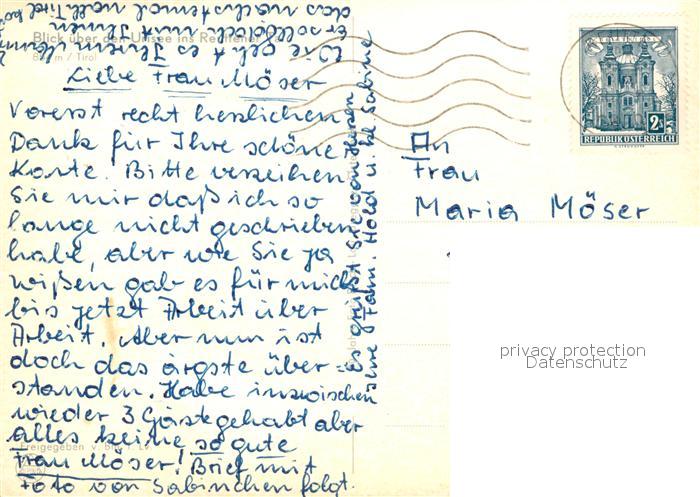 Blick über den Urisee ins
m / Tirol
Liebe Frau Möser
Vorerst recht herzlichen
Dank für Ihre schöne
Karte. Bitte verzeihen
Sie mir daß ich so
lange nicht geschrieben
habe, aber wie Sie ja
wißen gab es für mich
bis jetzt Arbeit über
Arbeit. Aber nun ist
doch das ärgste über=
standen. Habe inzwischen
wieder 3 Gäste gehabt aber
alles keine so gute
Frau Möser! Brief mit
Foto von Sabinchen folgt.
Freigegeben v.
Wie geht es Ihrem Mann
Er soll doch mit Ihnen
das nächstemal nach Tirol
Es grüßt Sie von Herzen
Ihre Fam. Hold u. kl Sabine
An
Frau
Maria Möser
2S
REPUBLIK ÖSTERREICH
privacy protection
Datenschutz